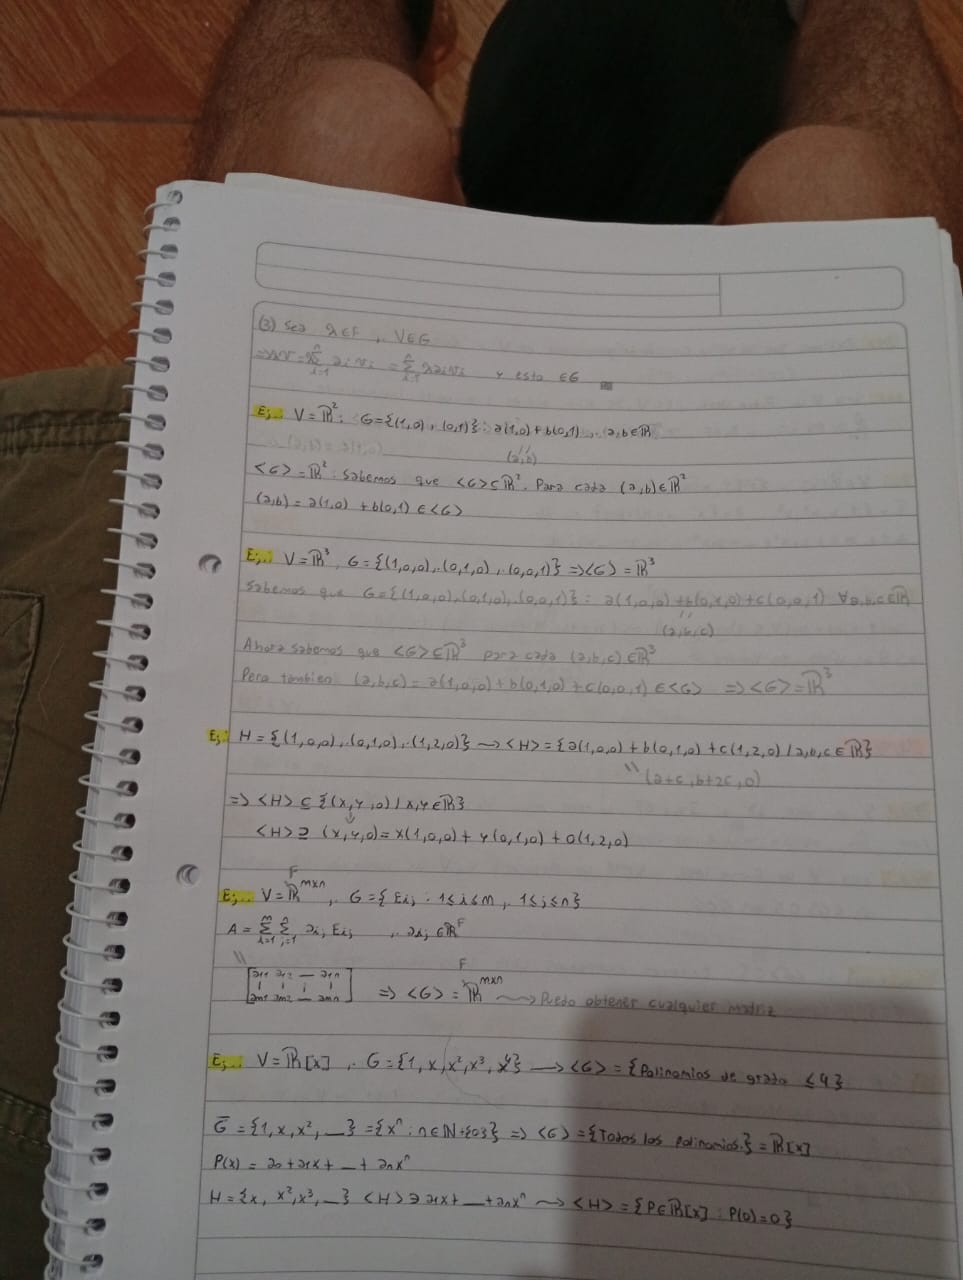 (3) Sea λ∈F, V∈G
⇒λV = λ∑ᵢ₌₁ⁿ aᵢVᵢ = ∑ᵢ₌₁ⁿ λaᵢVᵢ y esto ∈G
Ej.: V=ℝ²: G={(1,0), (0,1)}: a(1,0)+b(0,1), a,b∈ℝ
(a,b)
<G>=ℝ²: Sabemos que <G>⊆ℝ². Para cada (a,b)∈ℝ²
(a,b) = a(1,0) + b(0,1) ∈<G>
Ej.: V=ℝ³, G={(1,0,0), (0,1,0), (0,0,1)} ⇒<G>=ℝ³
Sabemos que G={(1,0,0),(0,1,0),(0,0,1)}: a(1,0,0)+b(0,1,0)+c(0,0,1) ∀a,b,c∈ℝ
(a,b,c)
Ahora sabemos que <G>⊆ℝ³ para cada (a,b,c)∈ℝ³
Pero tambien (a,b,c) = a(1,0,0)+b(0,1,0)+c(0,0,1)∈<G> ⇒<G>=ℝ³
Ej: H={(1,0,0), (0,1,0), (1,2,0)} → <H>={a(1,0,0)+b(0,1,0)+c(1,2,0) / a,b,c∈ℝ}
(a+c, b+2c, 0)
⇒ <H> ⊆ {(x,y,0) / x,y∈ℝ}
<H>⊇ (x,y,0)= x(1,0,0)+ y(0,1,0) + 0(1,2,0)
F
Ej.: V=ℝᵐˣⁿ, G={Eij : 1≤i≤m, 1≤j≤n}
A = ∑ᵢ₌₁ᵐ ∑ⱼ₌₁ⁿ aij Eij, aij ∈ℝ F
F
[a11 a12 — a1n
am1 am2 — amn] ⇒ <G> = ℝᵐˣⁿ → Puedo obtener cualquier matriz
Ej.: V=ℝ[x], G={1, x, x², x³, x⁴} → <G>={Polinomios de grado ≤4}
G̅ = {1, x, x², —} = {xⁿ : n∈ℕ+{0}} ⇒ <G>={Todos los polinomios} = ℝ[x]
P(x) = a0 + a1x + — + anxⁿ
H={x, x², x³, —} <H>∋ a1x + — + anxⁿ → <H>={P∈ℝ[x] : P(0)=0}